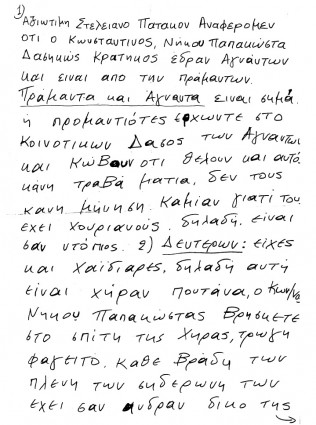 1)
Αξιωτιμη Στελειανο Πατακον Αναφερομεν
οτι ο Κωνσταυτινος, Νηκου Παπακώστα
Δασηκώς Κρατηκος εδραν Αγνάντων
και ειναι απο την πράμαντων.
Πράμαντα και Αγναντα ειναι σημά.
ή προμαντιότες ερχωντε στο
Κοινοτικων Δασος των Αγναντων
και Κώβουν οτι θελουν και αυτό
κάνη τραβά ματια, δεν τους
κανη μήνηση. Καμίαν γιατί τους
εχει χουριανούς. δηλαδή, είναι
σαν ντόπιος. 2) Δευτερων: είχες
και χαϊδιαρες, δηλαδή αυτή
είναι χήραν πουτάνα, ο Κων/νος
Νηκου Παπακώστας βρησκετε
στο σπίτη της χηρας, τρωγη
φαγειτο. καθε βράδη των
πλενη των σηδερωνη των
εχει σαν ανδραν δικο της